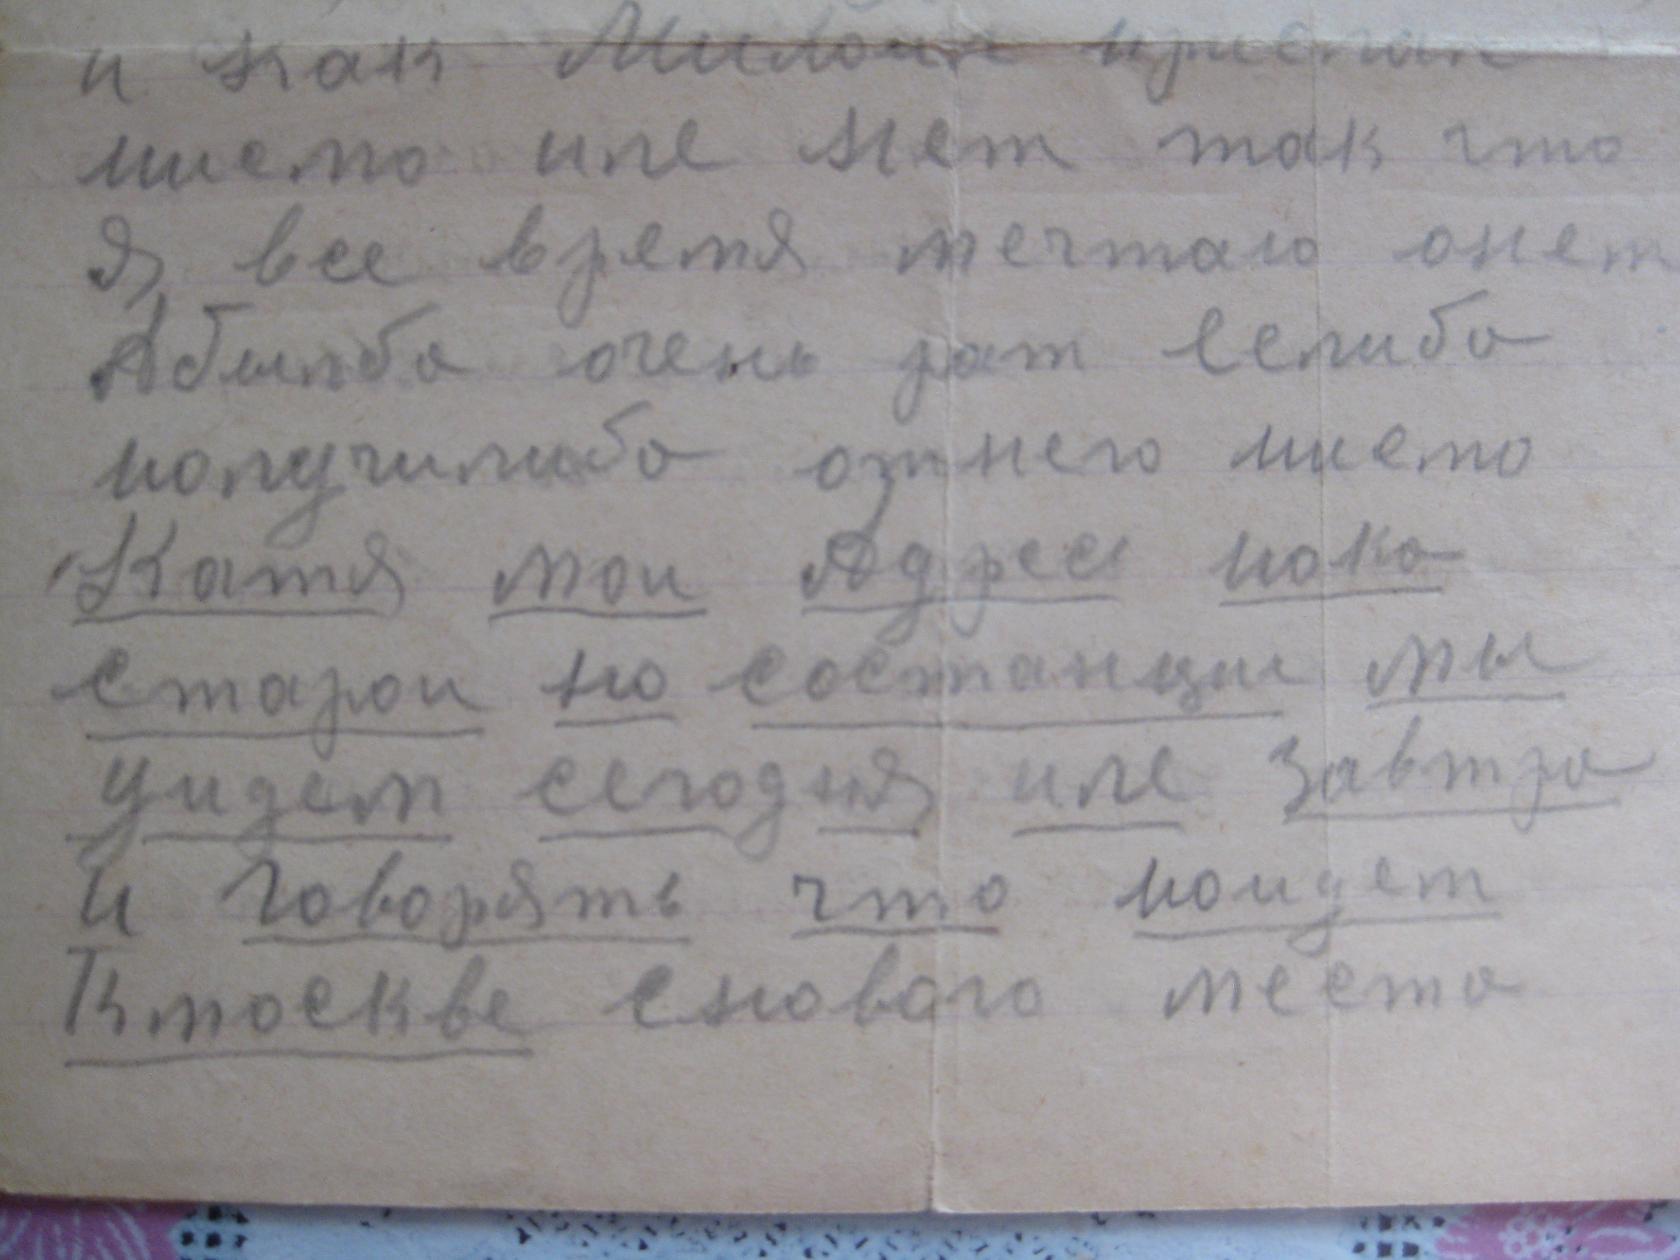 и как Милоня прислал
писмо иле нет так что
я все время мечтаю онем
Абылбы очень рат еслибы
получилибы отнего писмо
Катя мои Адрес пока
старои но состанции мы
уидем сегодня иле завтра
и говорять что поидет
Кмоскве снового места